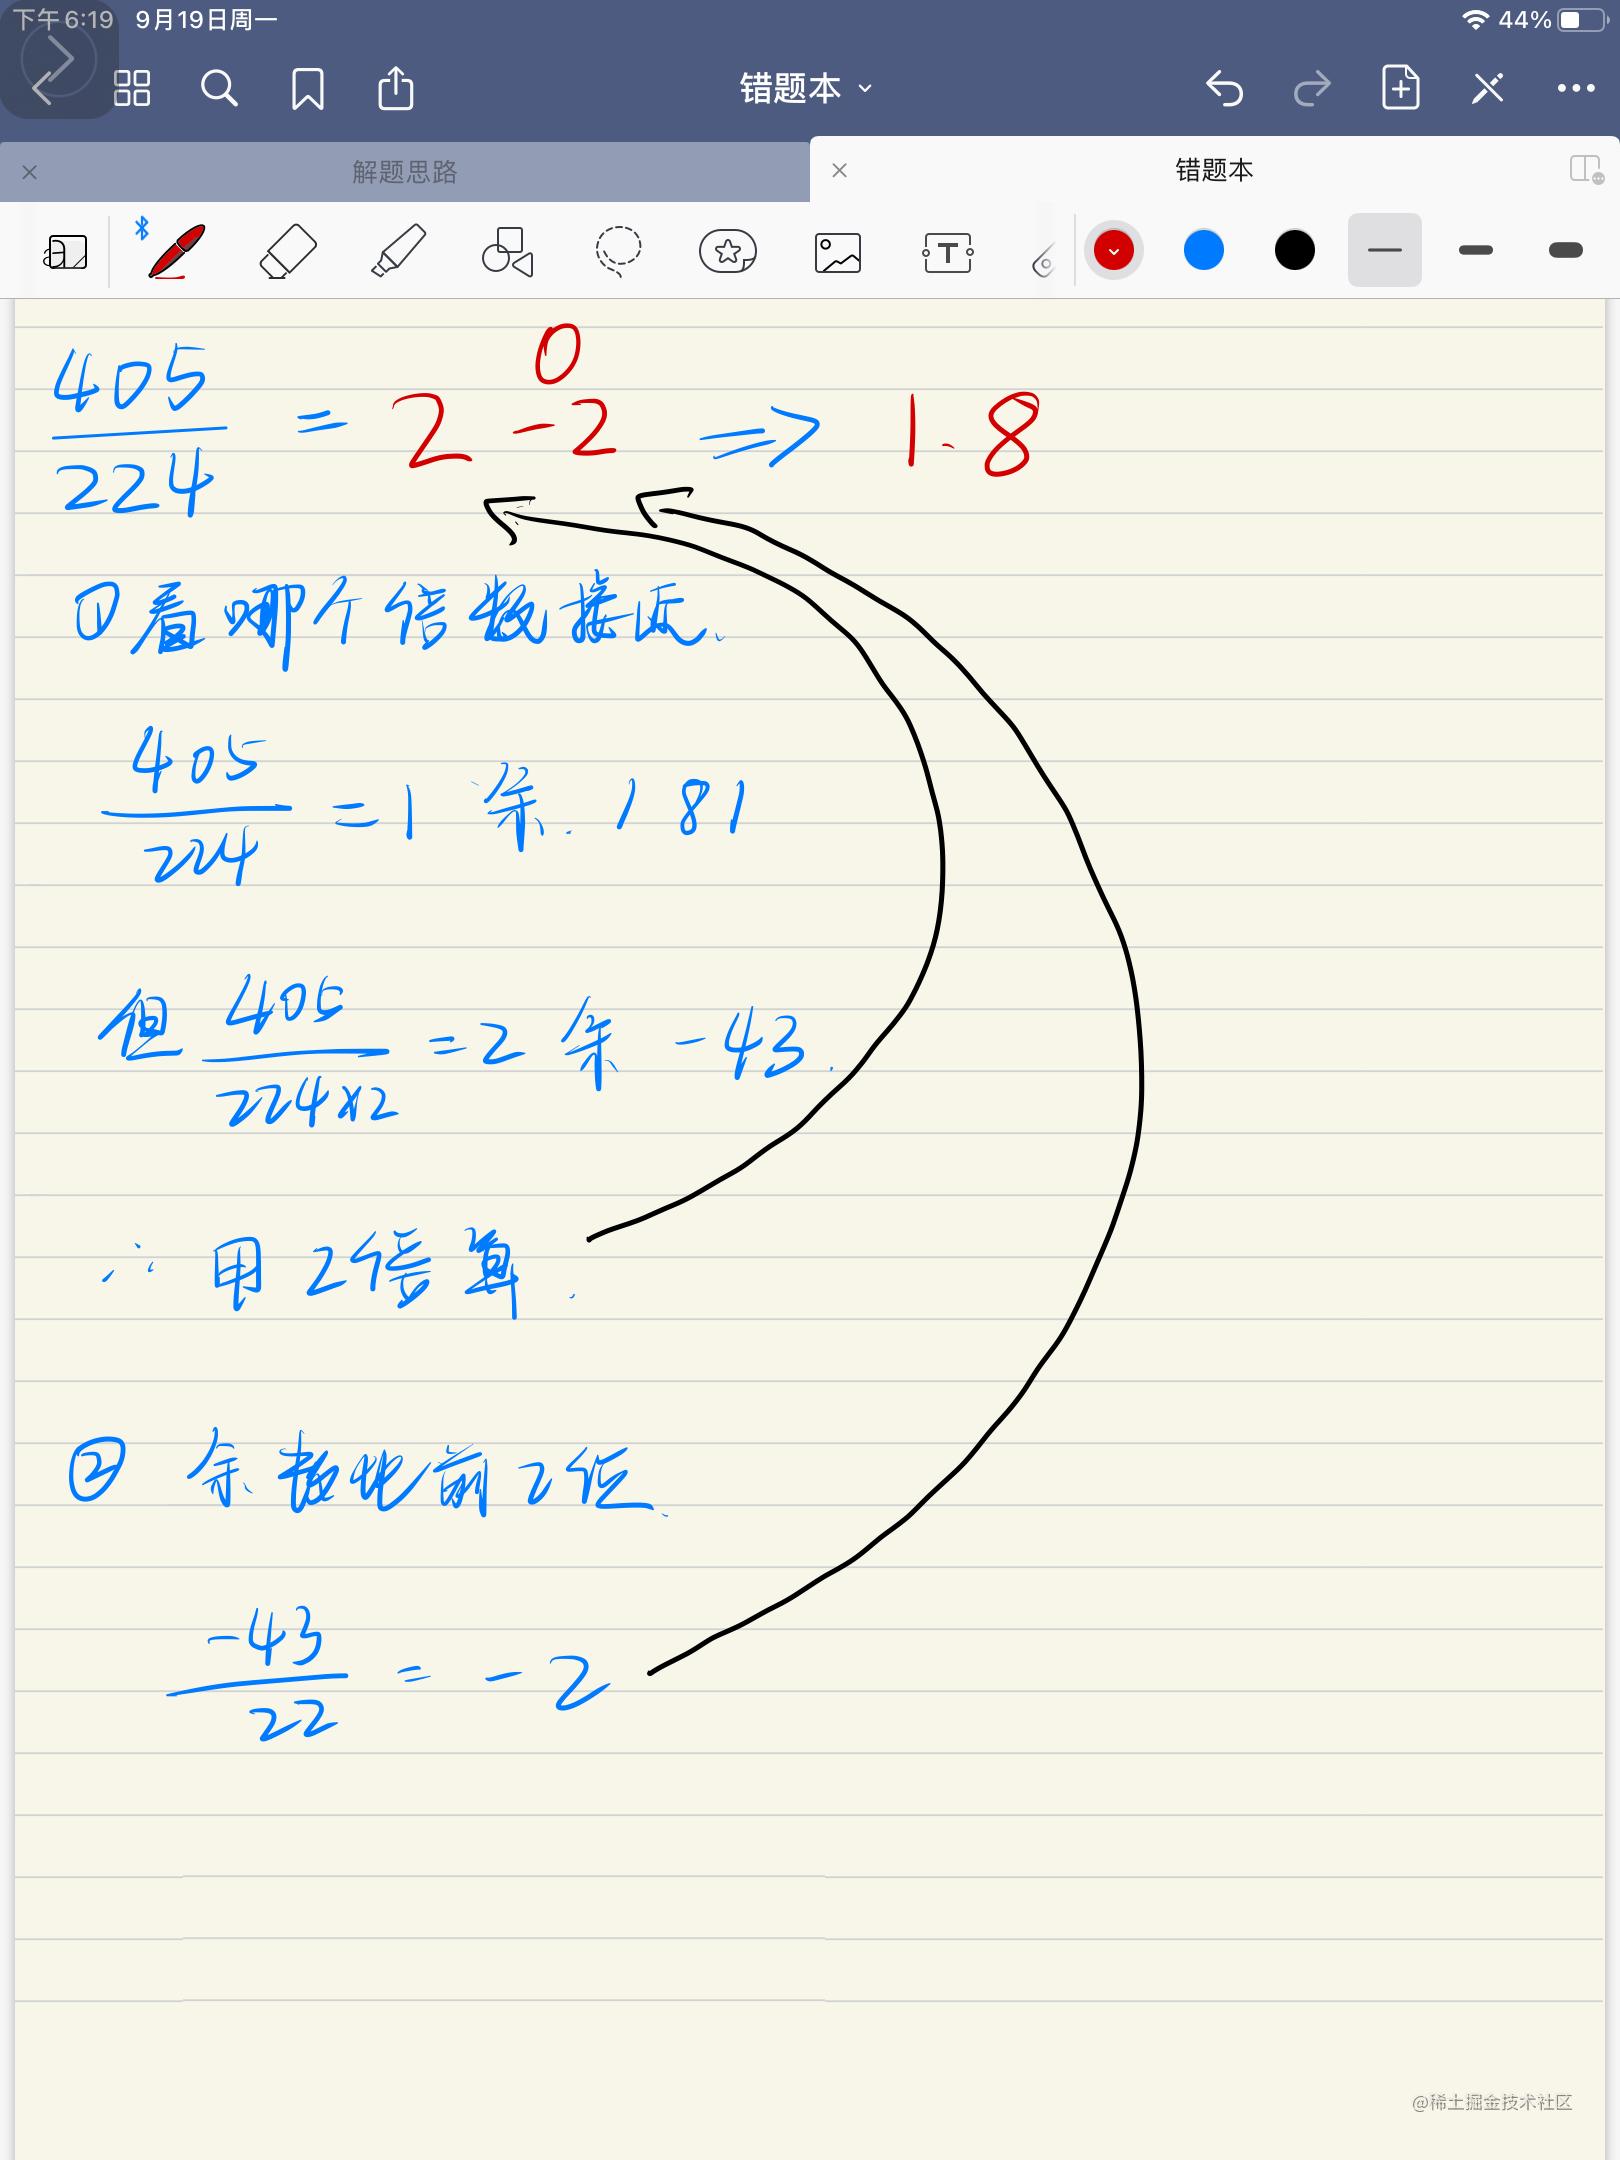 下午6:19 9月19日周一 44%
错题本
解题思路 错题本
0
405/224 = 2 -2 ⇒ 1.8
①看哪个倍数接近.
405/224 = 1 余. 181
但 405/224×2 = 2 余 -43.
∴ 用2倍算.
② 余数比前2位.
-43/22 = -2
@稀土掘金技术社区